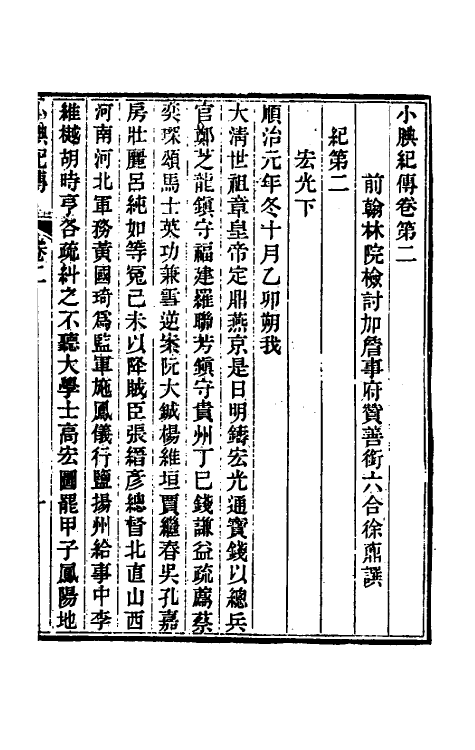 小腆紀傳卷第二
前翰林院檢討加詹事府贊善銜六合徐鼒譔
紀第二
宏光下
順治元年冬十月乙卯朔我
大清世祖章皇帝定鼎燕京是日明鑄宏光通寶錢以總兵
官鄭芝龍鎮守福建羅聯芳鎮守貴州丁巳錢謙益疏薦蔡
奕琛頌馬士英功兼雪逆案阮大鋮楊維垣賈繼春吳孔嘉
房壯麗呂純如等冤己未以降賊臣張縉彥總督北直山西
河南河北軍務黃國琦爲監軍施鳳儀行鹽揚州給事中李
維樾胡時亨各疏糾之不聽大學士高宏圖罷甲子鳳陽地
小腆紀傳
卷二
一